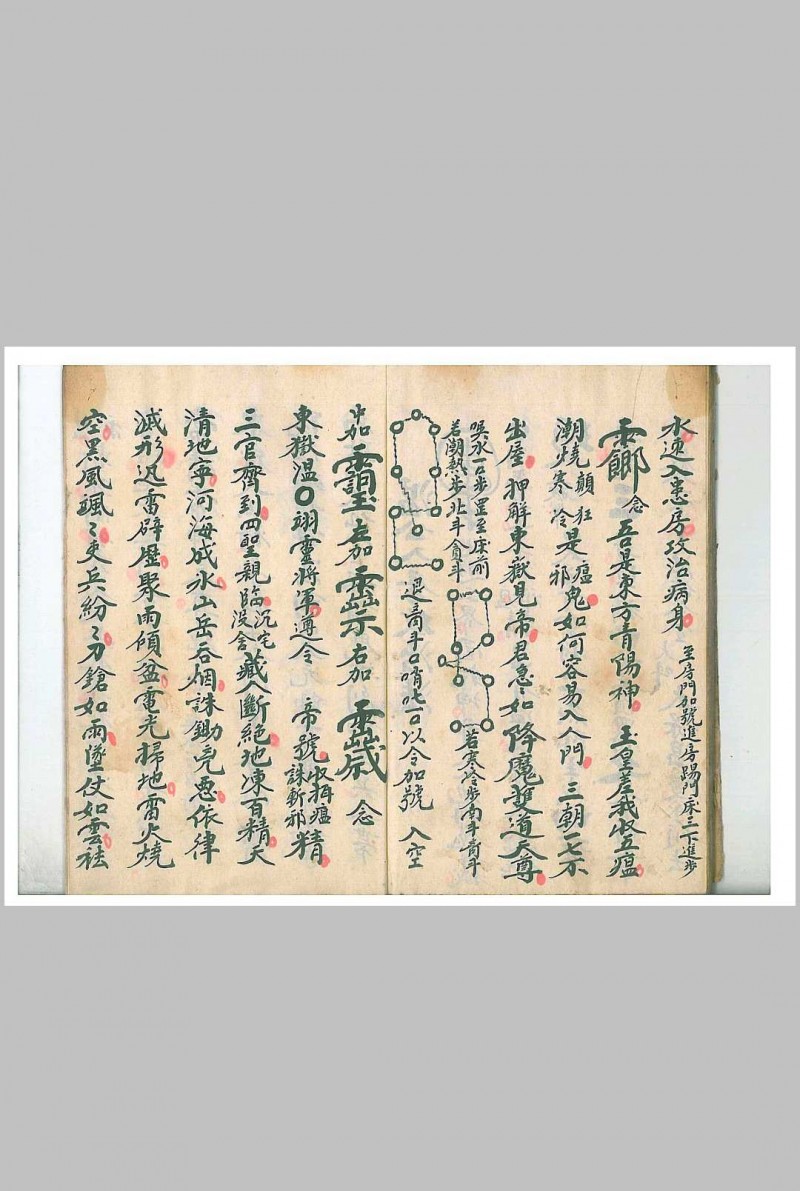 水速入患房攻治病身 至房門加號進房踢門床三下進步
念 吾是東方青陽神 玉皇差我收五瘟
潮燒顛狂寒冷是瘟邪鬼如何容易入人門 三朝一七不
出屋 押解東嶽見帝君急如 降魔雙道天尊
吳水一口步罡至床前
若潮熱步北斗貪斗
若寒冷步南斗
退斗口哨吒一口以令加號 入空
中加 左加 右加 念
東嶽溫〇翊靈將軍遵令 帝號收捐瘟誅斬邪精
三官齊到四聖親臨沉宅沒舍藏人斷絕地凍百精天
清地寧河海成氷山岳吞烟誅鋤兇惡依律
滅形迅雷霹靂聚雨傾盆電光掃地雷火燒
空黑風颯〻吏兵紛〻刀鎗如雨墜仗如雲祛